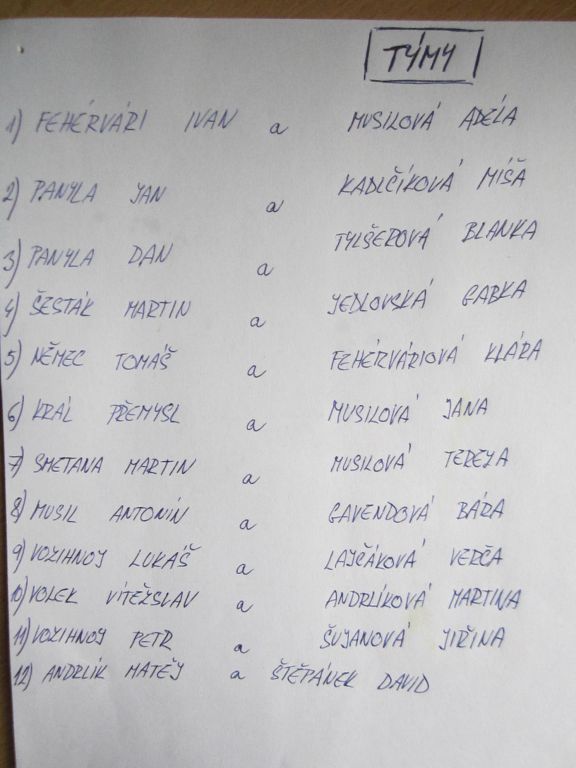 TÝMY
1) FEHÉRVÁRI IVAN a MUSILOVÁ ADÉLA
2) PANYLA JAN a KADLČÍKOVÁ MÍŠA
3) PANYLA DAN a TYLŠEROVÁ BLANKA
4) ŠESTÁK MARTIN a JEDLOVSKÁ GABKA
5) NĚMEC TOMÁŠ a FEHÉRVÁRIOVÁ KLÁRA
6) KRÁL PŘEMYSL a MUSILOVÁ JANA
7) SMETANA MARTIN a MUSILOVÁ TEREZA
8) MUSIL ANTONÍN a GAVENDOVÁ BÁRA
9) VOZIHNOJ LUKÁŠ a LAJČÁKOVÁ VERČA
10) VOLEK VÍTĚZSLAV a ANDRLÍKOVÁ MARTINA
11) VOZIHNOJ PETR a ŠUJANOVÁ JIŘINA
12) ANDRLÍK MATĚJ a ŠTĚPÁNEK DAVID